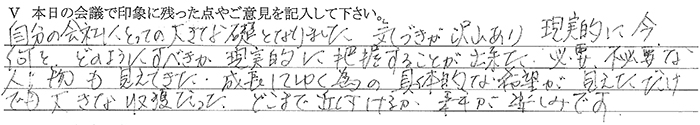 V 本日の会議で印象に残った点やご意見を記入して下さい。
自分の会社にとっての大きな礎となりました 気づきが沢山あり 現実的に今
何を、どのようにすべきか現実的に把握することが出来た。必要、不必要な
人、物も見えてきた。成長してゆく為の具体的な希望が見えただけ
でも大きな収穫だった どこまで近しずけるか、来年が楽しみです